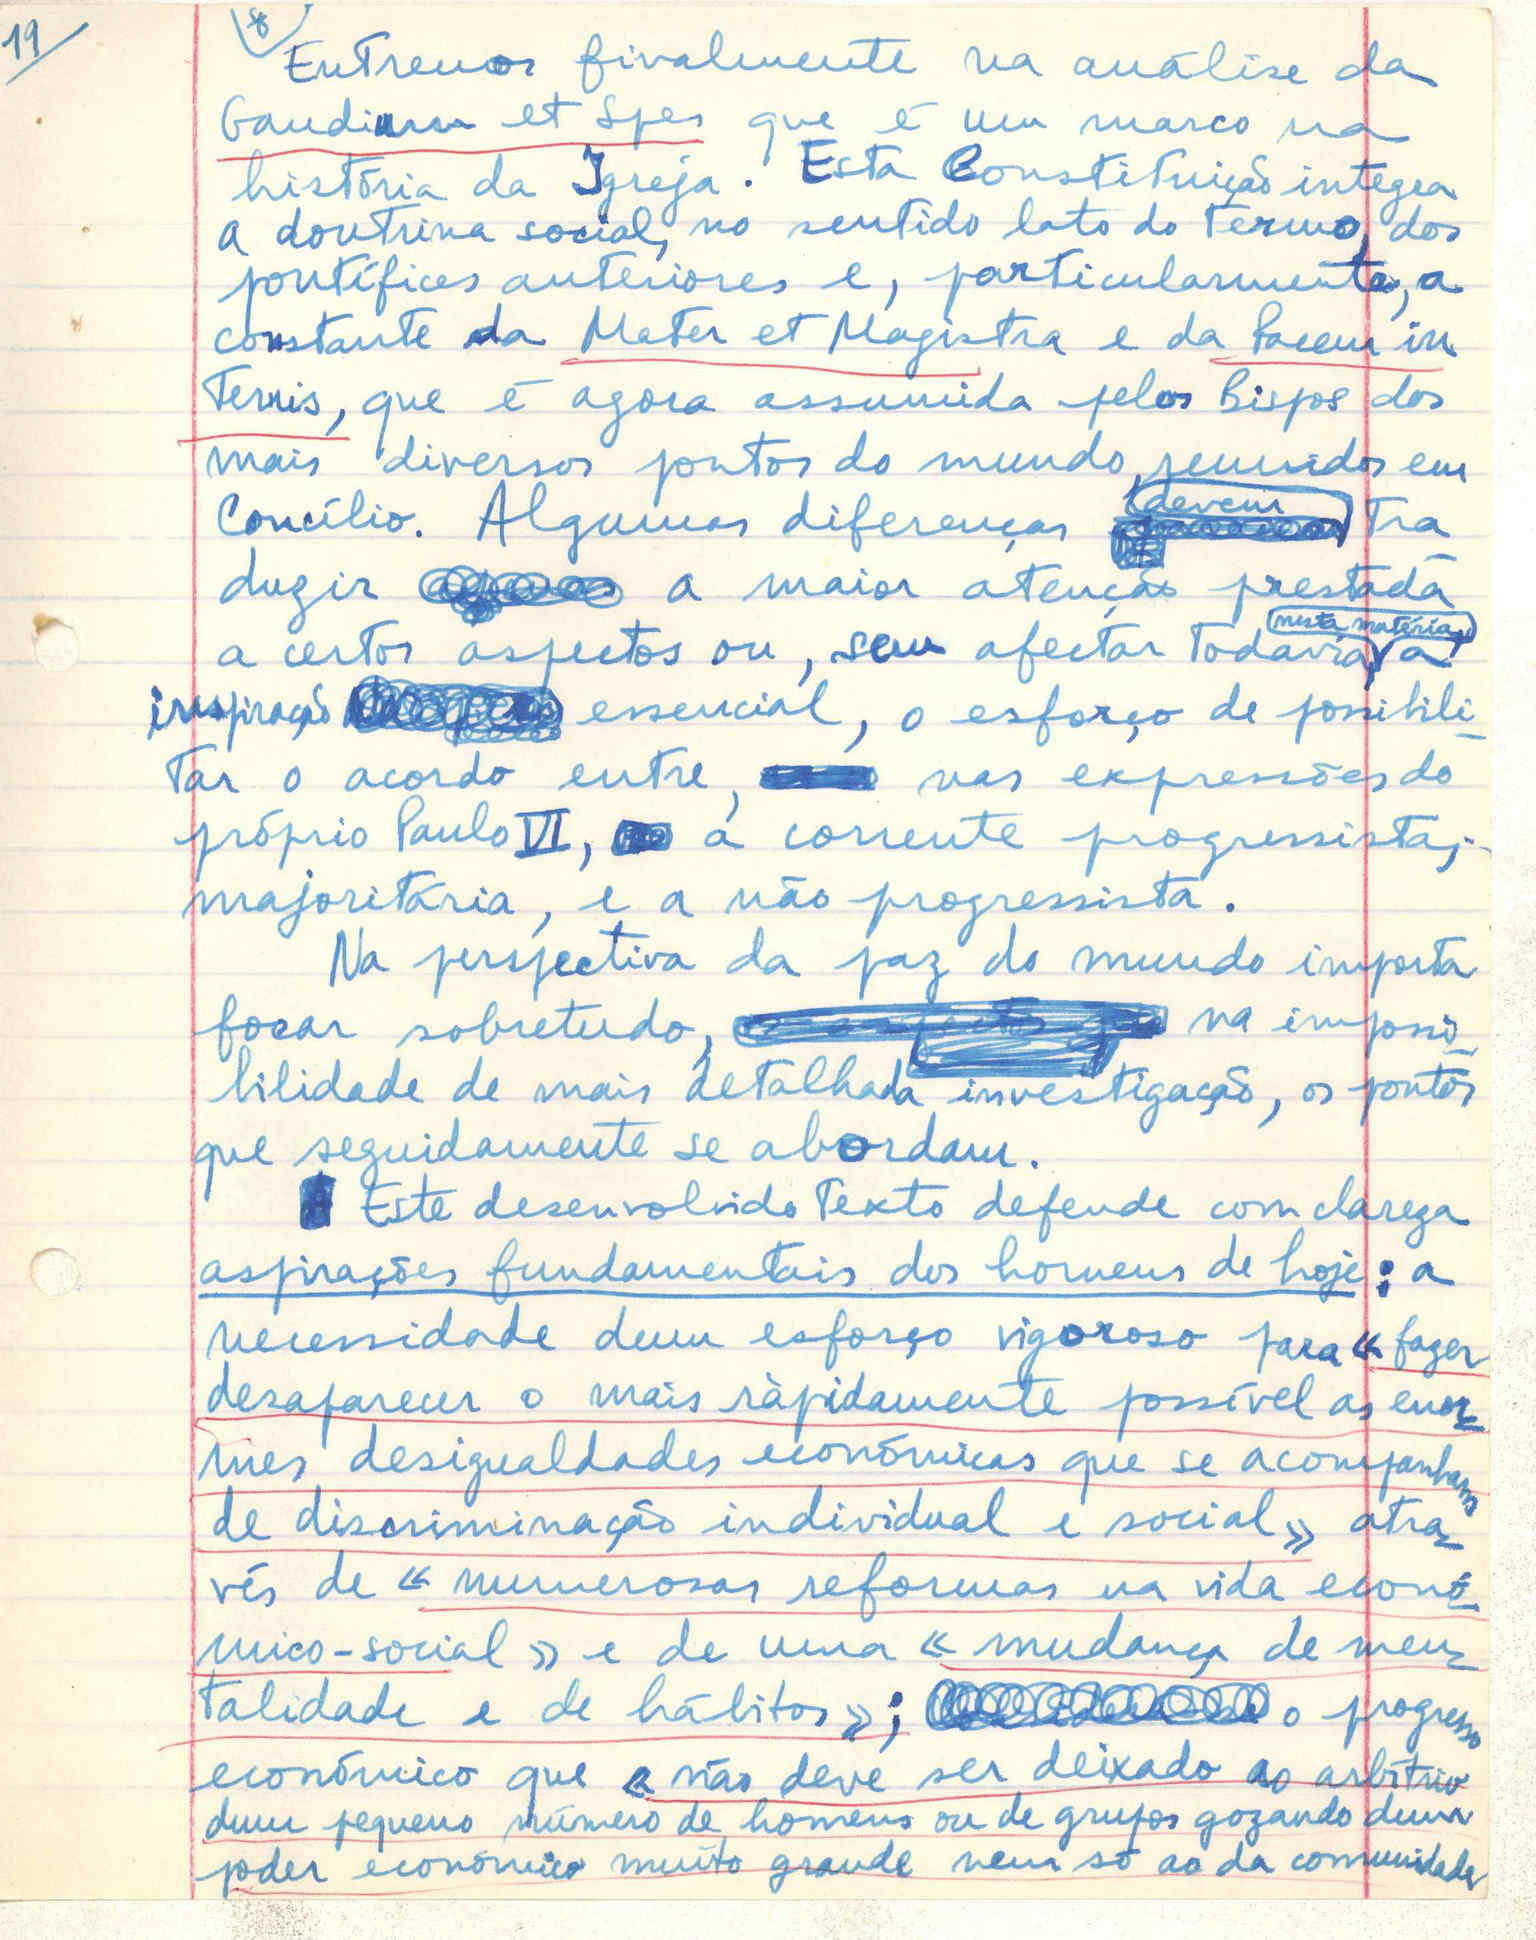 19
8
Entremos finalmente na análise da
Gaudium et Spes que é um marco na
história da Igreja. Esta Constituição integra
a doutrina social, no sentido lato do termo, dos
pontífices anteriores e, particularmente, a
constante da Mater et Magistra e da Pacem in
Terris, que é agora assumida pelos Bispos dos
mais diversos pontos do mundo, reunidos em
Concílio. Algumas diferenças devem tra
duzir a maior atenção prestada
a certos aspectos ou, sem afectar todavia, nesta matéria, a
inspiração essencial, o esforço de possibili-
tar o acordo entre, nas expressões do
próprio Paulo VI, a corrente progressista,
majoritária, e a não progressista.
Na perspectiva da paz do mundo importa
focar sobretudo, na impossi-
bilidade de mais detalhada investigação, os pontos
que seguidamente se abordam.
Este desenvolvido texto defende com clareza
aspirações fundamentais dos homens de hoje: a
necessidade dum esforço vigoroso para « fazer
desaparecer o mais ràpidamente possível as enor-
mes desigualdades económicas que se acompanham
de discriminação individual e social » atra-
vés de « numerosas reformas na vida econó-
mico-social » e de uma « mudança de men-
talidade e de hábitos »; o progresso
económico que « não deve ser deixado ao arbítrio
dum pequeno número de homens ou de grupos gozando dum
poder económico muito grande nem só ao da comunidade